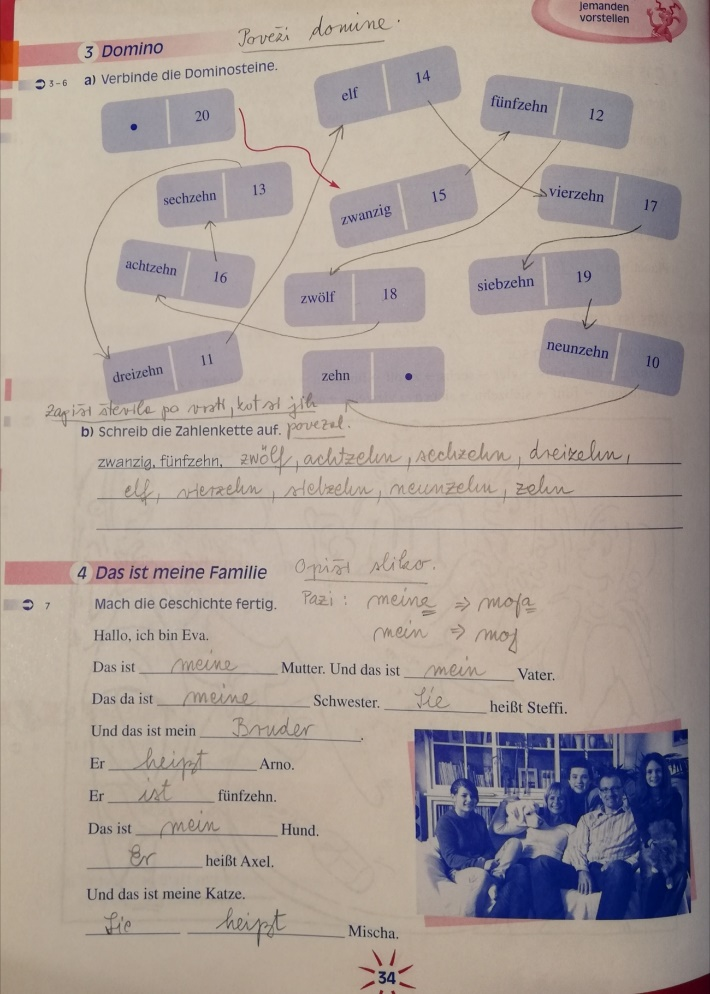 jemanden
vorstellen
3 Domino Poveži domine.
3-6 a) Verbinde die Dominosteine.
• 20
elf 14
fünfzehn 12
sechzehn 13
zwanzig 15
vierzehn 17
achtzehn 16
zwölf 18
siebzehn 19
dreizehn 11
zehn •
neunzehn 10
Zapiši števila po vrsti, kot si jih
b) Schreib die Zahlenkette auf. povezal.
zwanzig, fünfzehn, zwölf, achtzehn, sechzehn, dreizehn,
elf, vierzehn, siebzehn, neunzehn, zehn
4 Das ist meine Familie Opiši sliko.
7 Mach die Geschichte fertig. Pazi: meine ⇒ moja
Hallo, ich bin Eva. mein ⇒ moj
Das ist meine Mutter. Und das ist mein Vater.
Das da ist meine Schwester. Sie heißt Steffi.
Und das ist mein Bruder.
Er heißt Arno.
Er ist fünfzehn.
Das ist mein Hund.
Er heißt Axel.
Und das ist meine Katze.
Sie heißt Mischa.
34